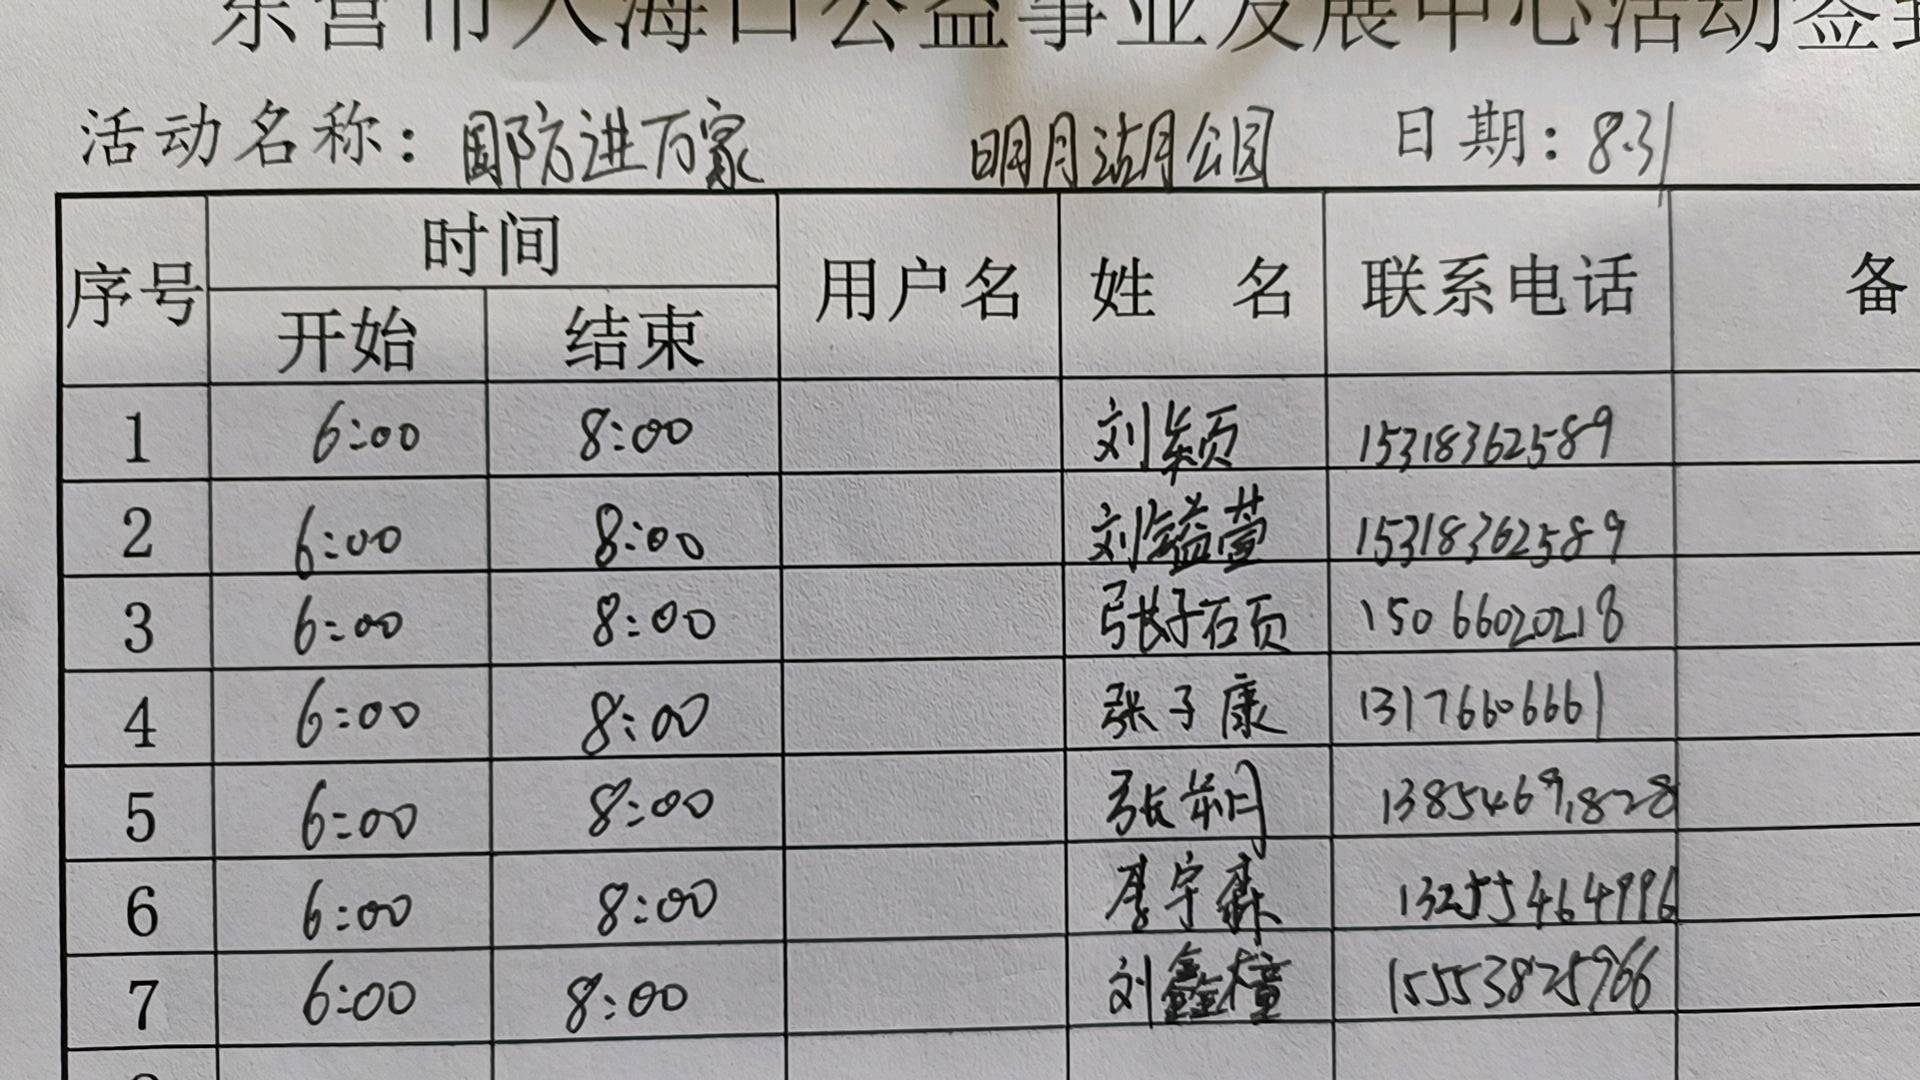 东营市入海口公益事业发展中心活动签到
活动名称：国防进万家 明月湖公园 日期：8.31
序号 时间 用户名 姓 名 联系电话 备
开始 结束
1 6:00 8:00 刘颖 15318362589
2 6:00 8:00 刘镒萱 15318362589
3 6:00 8:00 张子硕 15066020218
4 6:00 8:00 张子康 13176606661
5 6:00 8:00 张 13854691828
6 6:00 8:00 宇霖 13255464996
7 6:00 8:00 刘鑫橦 15553825966